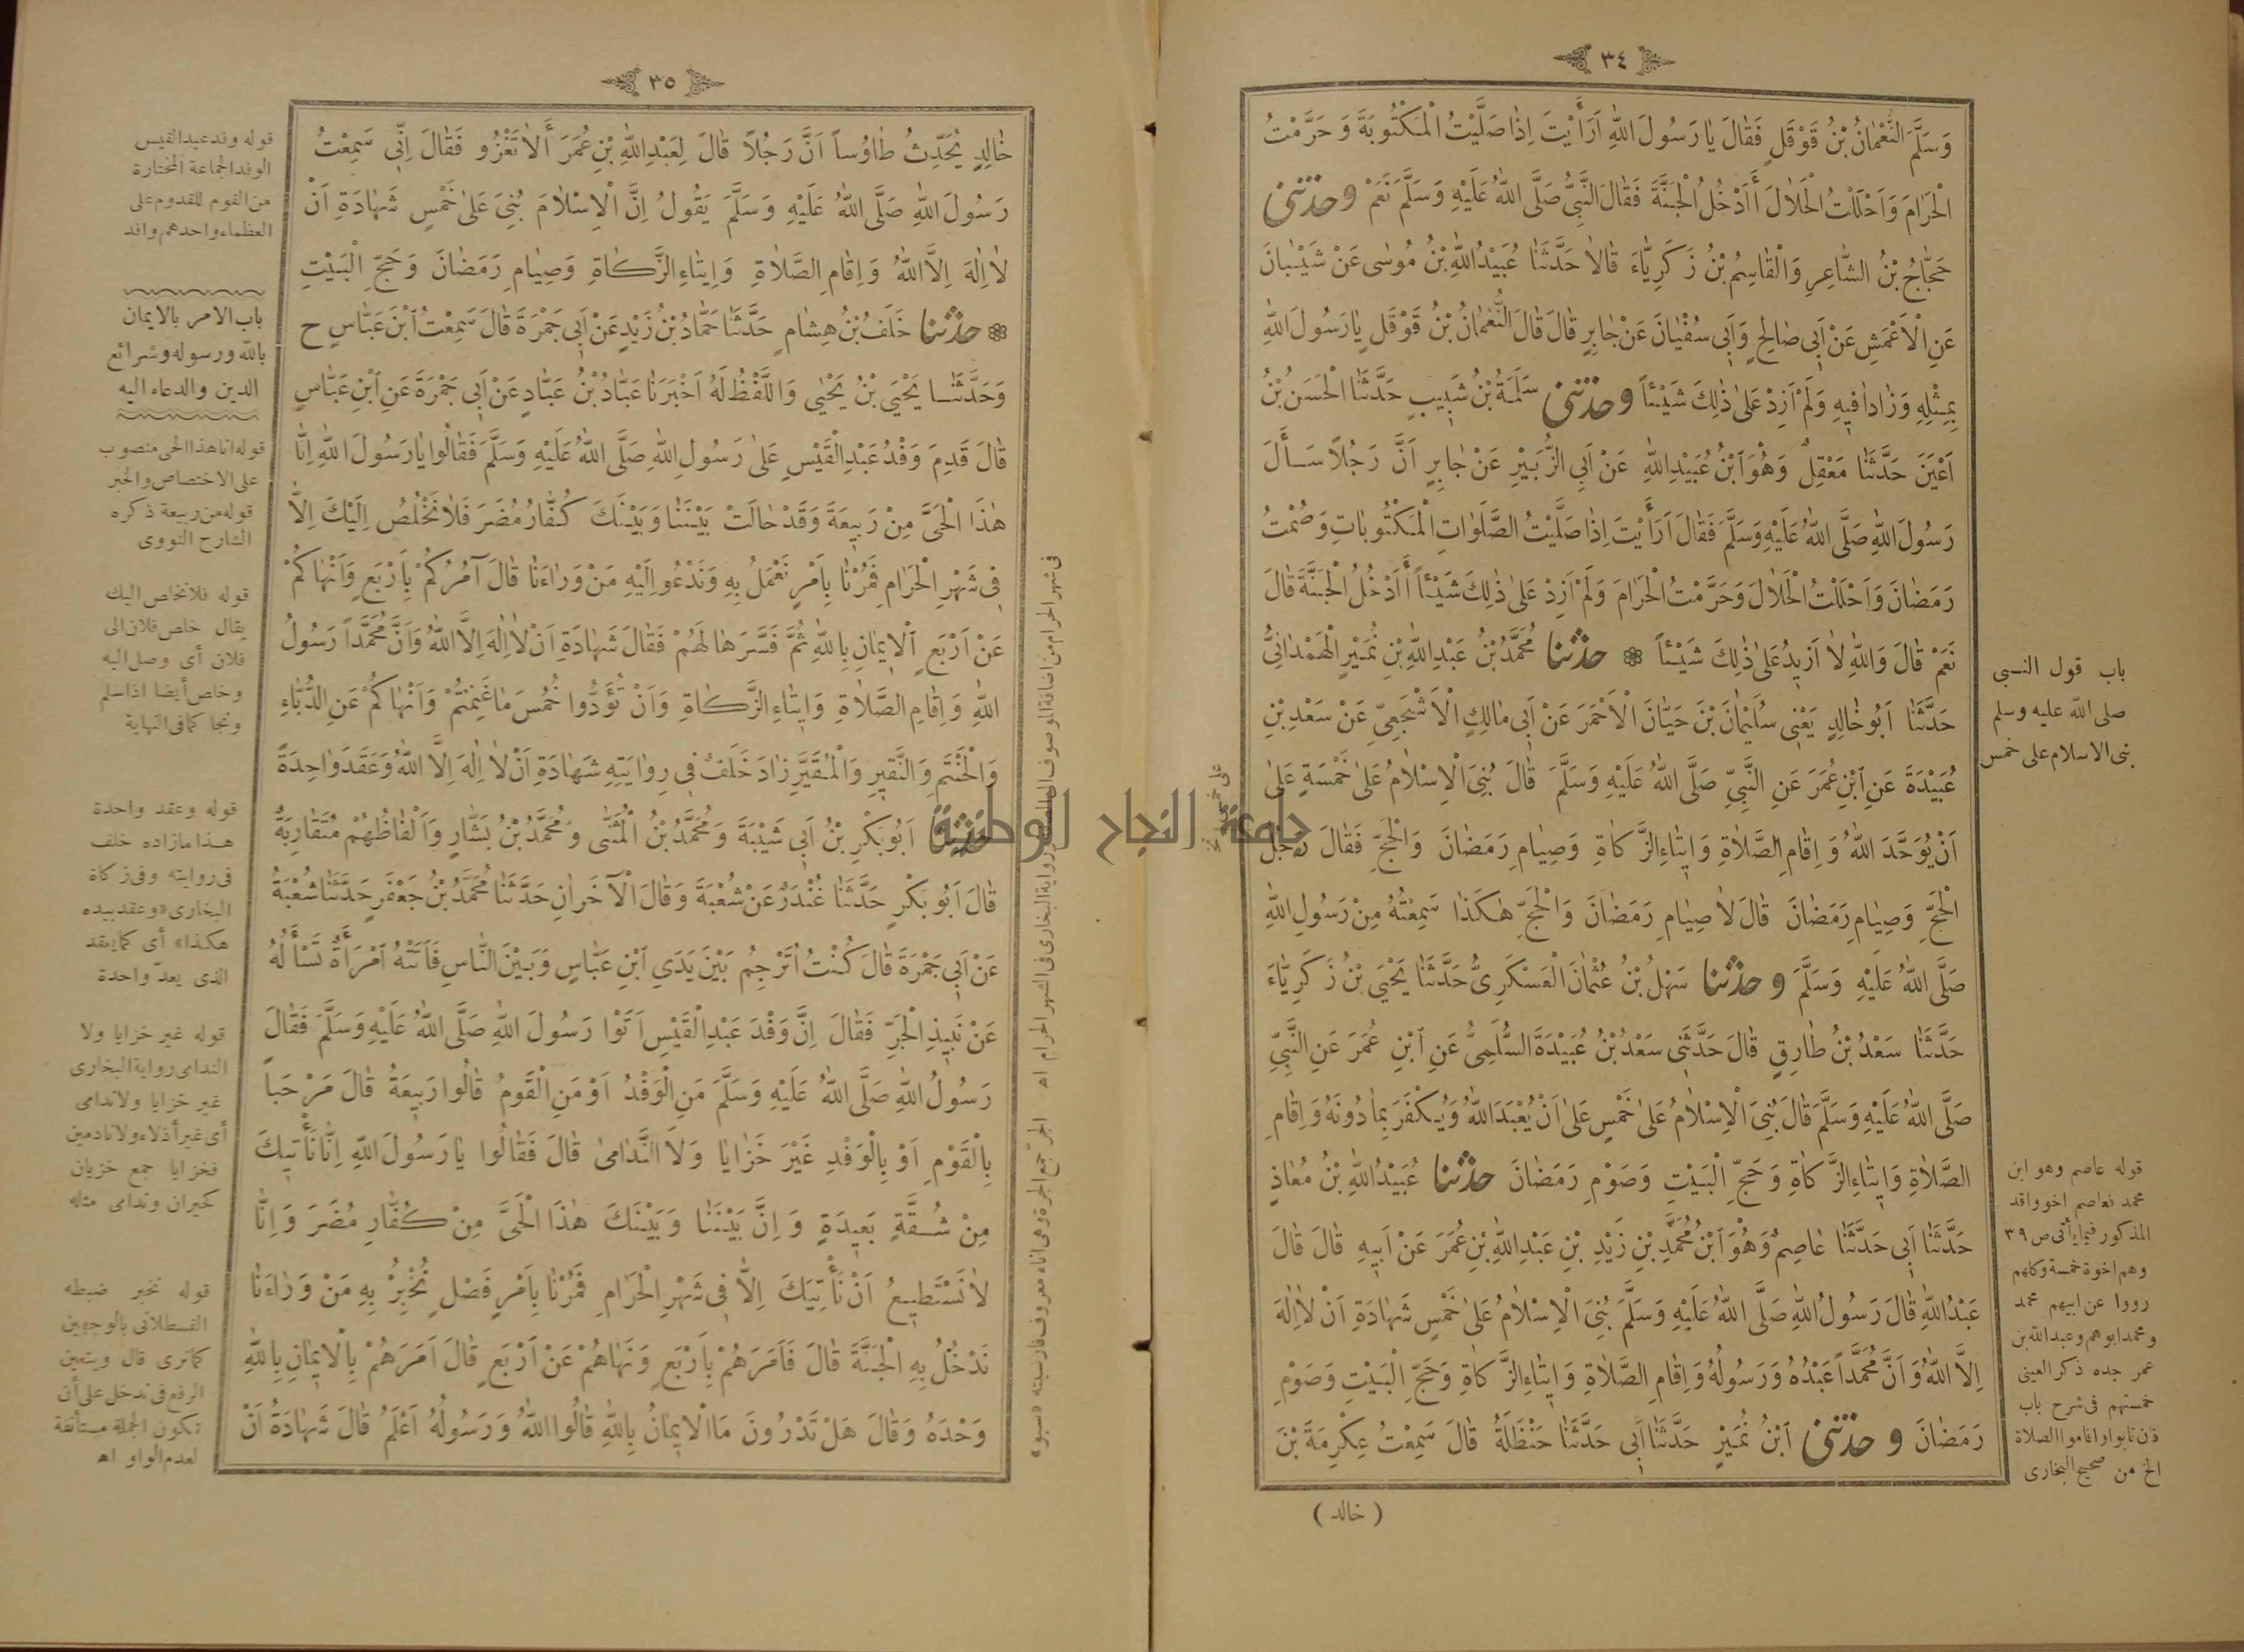 ٣٤
وَسَلَّمَ النُّعْمَانُ بْنُ قَوْقَلٍ فَقَالَ يَا رَسُولَ اللّٰهِ اَرَأَيْتَ اِذَا صَلَّيْتُ الْمَكْتُوبَةَ وَ حَرَّمْتُ
الْحَرَامَ وَاَحْلَلْتُ الْحَلَالَ أَاَدْخُلُ الْجَنَّةَ فَقَالَ النَّبِىُّ صَلَّى اللّٰهُ عَلَيْهِ وَسَلَّمَ نَعَمْ وحدثنى
حَجَّاجُ بْنُ الشَّاعِرِ وَالْقَاسِمُ بْنُ زَكَرِيَّاءَ قَالَا حَدَّثَنَا عُبَيْدُ اللّٰهِ بْنُ مُوسٰى عَنْ شَيْبَانَ
عَنِ الْاَعْمَشِ عَنْ اَبِى صَالِحٍ وَاَبِى سُفْيَانَ عَنْ جَابِرٍ قَالَ قَالَ النُّعْمَانُ بْنُ قَوْقَلٍ يَا رَسُولَ اللّٰهِ
بِمِثْلِهِ وَزَادَا فِيهِ وَلَمْ اَزِدْ عَلٰى ذٰلِكَ شَيْئاً وحدثنى سَلَمَةُ بْنُ شَبِيبٍ حَدَّثَنَا الْحَسَنُ بْنُ
اَعْيَنَ حَدَّثَنَا مَعْقِلٌ وَهُوَ ابْنُ عُبَيْدِ اللّٰهِ عَنْ اَبِى الزُّبَيْرِ عَنْ جَابِرٍ اَنَّ رَجُلاً سَأَلَ
رَسُولَ اللّٰهِ صَلَّى اللّٰهُ عَلَيْهِ وَسَلَّمَ فَقَالَ اَرَأَيْتَ اِذَا صَلَّيْتُ الصَّلَوَاتِ الْمَكْتُوبَاتِ وَصُمْتُ
رَمَضَانَ وَاَحْلَلْتُ الْحَلَالَ وَحَرَّمْتُ الْحَرَامَ وَلَمْ اَزِدْ عَلٰى ذٰلِكَ شَيْئاً أَاَدْخُلُ الْجَنَّةَ قَالَ
نَعَمْ قَالَ وَاللّٰهِ لَا اَزِيدُ عَلٰى ذٰلِكَ شَيْئاً ❁ حدثنا مُحَمَّدُ بْنُ عَبْدِ اللّٰهِ بْنِ نُمَيْرٍ الْهَمْدَانِىُّ
حَدَّثَنَا اَبُو خَالِدٍ يَعْنِى سُلَيْمَانَ بْنَ حَيَّانَ الْاَحْمَرَ عَنْ اَبِى مَالِكٍ الْاَشْجَعِىِّ عَنْ سَعْدِ بْنِ
عُبَيْدَةَ عَنِ ابْنِ عُمَرَ عَنِ النَّبِىِّ صَلَّى اللّٰهُ عَلَيْهِ وَسَلَّمَ قَالَ بُنِىَ الْاِسْلَامُ عَلٰى خَمْسَةٍ عَلٰى
اَنْ يُوَحَّدَ اللّٰهُ وَ اِقَامِ الصَّلَاةِ وَ اِيتَاءِ الزَّكَاةِ وَصِيَامِ رَمَضَانَ وَالْحَجِّ فَقَالَ رَجُلٌ
الْحَجِّ وَصِيَامِ رَمَضَانَ قَالَ لَا صِيَامِ رَمَضَانَ وَالْحَجِّ هٰكَذَا سَمِعْتُهُ مِنْ رَسُولِ اللّٰهِ
صَلَّى اللّٰهُ عَلَيْهِ وَسَلَّمَ وحدثنا سَهْلُ بْنُ عُثْمَانَ الْعَسْكَرِىُّ حَدَّثَنَا يَحْيَى بْنُ زَكَرِيَّاءَ
حَدَّثَنَا سَعْدُ بْنُ طَارِقٍ قَالَ حَدَّثَنِى سَعْدُ بْنُ عُبَيْدَةَ السُّلَمِىُّ عَنِ ابْنِ عُمَرَ عَنِ النَّبِىِّ
صَلَّى اللّٰهُ عَلَيْهِ وَسَلَّمَ قَالَ بُنِىَ الْاِسْلَامُ عَلٰى خَمْسٍ عَلٰى اَنْ يُعْبَدَ اللّٰهُ وَيُكْفَرَ بِمَا دُونَهُ وَ اِقَامِ
الصَّلَاةِ وَ اِيتَاءِ الزَّكَاةِ وَحَجِّ الْبَيْتِ وَصَوْمِ رَمَضَانَ حدثنا عُبَيْدُ اللّٰهِ بْنُ مُعَاذٍ
حَدَّثَنَا اَبِى حَدَّثَنَا عَاصِمٌ وَهُوَ ابْنُ مُحَمَّدِ بْنِ زَيْدِ بْنِ عَبْدِ اللّٰهِ بْنِ عُمَرَ عَنْ اَبِيهِ قَالَ قَالَ
عَبْدُ اللّٰهِ قَالَ رَسُولُ اللّٰهِ صَلَّى اللّٰهُ عَلَيْهِ وَسَلَّمَ بُنِىَ الْاِسْلَامُ عَلٰى خَمْسٍ شَهَادَةِ اَنْ لَا اِلٰهَ
اِلَّا اللّٰهُ وَ اَنَّ مُحَمَّداً عَبْدُهُ وَرَسُولُهُ وَ اِقَامِ الصَّلَاةِ وَ اِيتَاءِ الزَّكَاةِ وَحَجِّ الْبَيْتِ وَصَوْمِ
رَمَضَانَ وحدثنى ابْنُ نُمَيْرٍ حَدَّثَنَا اَبِى حَدَّثَنَا حَنْظَلَةُ قَالَ سَمِعْتُ عِكْرِمَةَ بْنَ
( خالد )
باب قول النبى
صلى الله عليه وسلم
بنى الاسلام على خمس
قوله عاصم وهو ابن
محمد فعاصم اخو واقد
المذكور فيما يأتى ص ٣٩
وهم اخوة خمسة وكلهم
رووا عن ابيهم محمد
ومحمد ابوهم وعبدالله بن
عمر جده ذكر العينى
خمستهم فى شرح باب
فان تابوا واقاموا الصلاة
الخ من صحيح البخارى
٣٥
خَالِدٍ يُحَدِّثُ طَاوُساً اَنَّ رَجُلاً قَالَ لِعَبْدِ اللّٰهِ بْنِ عُمَرَ أَلَا تَغْزُو فَقَالَ اِنِّى سَمِعْتُ
رَسُولَ اللّٰهِ صَلَّى اللّٰهُ عَلَيْهِ وَسَلَّمَ يَقُولُ اِنَّ الْاِسْلَامَ بُنِىَ عَلٰى خَمْسٍ شَهَادَةِ اَنْ
لَا اِلٰهَ اِلَّا اللّٰهُ وَ اِقَامِ الصَّلَاةِ وَ اِيتَاءِ الزَّكَاةِ وَصِيَامِ رَمَضَانَ وَحَجِّ الْبَيْتِ
❁ حدثنا خَلَفُ بْنُ هِشَامٍ حَدَّثَنَا حَمَّادُ بْنُ زَيْدٍ عَنْ اَبِى جَمْرَةَ قَالَ سَمِعْتُ ابْنَ عَبَّاسٍ ح
وَحَدَّثَنَا يَحْيَى بْنُ يَحْيٰى وَاللَّفْظُ لَهُ اَخْبَرَنَا عَبَّادُ بْنُ عَبَّادٍ عَنْ اَبِى جَمْرَةَ عَنِ ابْنِ عَبَّاسٍ
قَالَ قَدِمَ وَفْدُ عَبْدِ الْقَيْسِ عَلٰى رَسُولِ اللّٰهِ صَلَّى اللّٰهُ عَلَيْهِ وَسَلَّمَ فَقَالُوا يَا رَسُولَ اللّٰهِ اِنَّا
هٰذَا الْحَىَّ مِنْ رَبِيعَةَ وَقَدْ حَالَتْ بَيْنَنَا وَبَيْنَكَ كُفَّارُ مُضَرَ فَلَا نَخْلُصُ اِلَيْكَ اِلَّا
فِى شَهْرِ الْحَرَامِ فَمُرْنَا بِاَمْرٍ نَعْمَلُ بِهِ وَنَدْعُو اِلَيْهِ مَنْ وَرَاءَنَا قَالَ آمُرُكُمْ بِاَرْبَعٍ وَاَنْهَاكُمْ
عَنْ اَرْبَعٍ اَلْاِيمَانِ بِاللّٰهِ ثُمَّ فَسَّرَهَا لَهُمْ فَقَالَ شَهَادَةِ اَنْ لَا اِلٰهَ اِلَّا اللّٰهُ وَاَنَّ مُحَمَّداً رَسُولُ
اللّٰهِ وَ اِقَامِ الصَّلَاةِ وَ اِيتَاءِ الزَّكَاةِ وَاَنْ تُؤَدُّوا خُمُسَ مَا غَنِمْتُمْ وَاَنْهَاكُمْ عَنِ الدُّبَّاءِ
وَالْحَنْتَمِ وَالنَّقِيرِ وَالْمُقَيَّرِ زَادَ خَلَفٌ فِى رِوَايَتِهِ شَهَادَةِ اَنْ لَا اِلٰهَ اِلَّا اللّٰهُ وَعَقَدَ وَاحِدَةً
حدثنا اَبُو بَكْرِ بْنُ اَبِى شَيْبَةَ وَ مُحَمَّدُ بْنُ الْمُثَنّٰى وَ مُحَمَّدُ بْنُ بَشَّارٍ وَاَلْفَاظُهُمْ مُتَقَارِبَةٌ
قَالَ اَبُو بَكْرٍ حَدَّثَنَا غُنْدَرٌ عَنْ شُعْبَةَ وَقَالَ الْآخَرَانِ حَدَّثَنَا مُحَمَّدُ بْنُ جَعْفَرٍ حَدَّثَنَا شُعْبَةُ
عَنْ اَبِى جَمْرَةَ قَالَ كُنْتُ اُتَرْجِمُ بَيْنَ يَدَىِ ابْنِ عَبَّاسٍ وَبَيْنَ النَّاسِ فَاَتَتْهُ امْرَأَةٌ تَسْأَلُهُ
عَنْ نَبِيذِ الْجَرِّ فَقَالَ اِنَّ وَفْدَ عَبْدِ الْقَيْسِ اَتَوْا رَسُولَ اللّٰهِ صَلَّى اللّٰهُ عَلَيْهِ وَسَلَّمَ فَقَالَ
رَسُولُ اللّٰهِ صَلَّى اللّٰهُ عَلَيْهِ وَسَلَّمَ مَنِ الْوَفْدُ اَوْ مَنِ الْقَوْمُ قَالُوا رَبِيعَةُ قَالَ مَرْحَباً
بِالْقَوْمِ اَوْ بِالْوَفْدِ غَيْرَ خَزَايَا وَلَا النَّدَامٰى قَالَ فَقَالُوا يَا رَسُولَ اللّٰهِ اِنَّا نَأْتِيكَ
مِنْ شُقَّةٍ بَعِيدَةٍ وَ اِنَّ بَيْنَنَا وَبَيْنَكَ هٰذَا الْحَىَّ مِنْ كُفَّارِ مُضَرَ وَ اِنَّا
لَا نَسْتَطِيعُ اَنْ نَأْتِيَكَ اِلَّا فِى شَهْرِ الْحَرَامِ فَمُرْنَا بِاَمْرٍ فَصْلٍ نُخْبِرْ بِهِ مَنْ وَرَاءَنَا
نَدْخُلُ بِهِ الْجَنَّةَ قَالَ فَاَمَرَهُمْ بِاَرْبَعٍ وَنَهَاهُمْ عَنْ اَرْبَعٍ قَالَ اَمَرَهُمْ بِالْاِيمَانِ بِاللّٰهِ
وَحْدَهُ وَقَالَ هَلْ تَدْرُونَ مَا الْاِيمَانُ بِاللّٰهِ قَالُوا اللّٰهُ وَرَسُولُهُ اَعْلَمُ قَالَ شَهَادَةُ اَنْ
قوله وفد عبدالقيس
الوفد الجماعة المختارة
من القوم للقدوم على
العظماء واحدهم وافد
باب الامر بالايمان
بالله ورسوله وشرائع
الدين والدعاء اليه
قوله انا هذا الحى منصوب
على الاختصاص والخبر
قوله من ربيعة ذكره
الشارح النووى
قوله فلا نخلص اليك
يقال خلص فلان الى
فلان أى وصل اليه
وخلص أيضا اذا سلم
ونجا كما فى النهاية
قوله وعقد واحدة
هذا ما زاده خلف
فى روايته وفى زكاة
البخارى «وعقد بيده
هكذا» أى كما يعقد
الذى يعدّ واحدة
قوله غير خزايا ولا
الندامى رواية البخارى
غير خزايا ولا ندامى
أى غير أذلاء ولا نادمين
فخزايا جمع خزيان
كحيران وندامى مثله
قوله نخبر ضبطه
القسطلانى بالوجهين
كما ترى قال ويتعين
الرفع فى ندخل على أن
تكون الجملة مستأنفة
لعدم الواو اه
فى شهر الحرام من اضافة الموصوف الى رواية البخارى فى الشهر الحرام اه الجرّ جمع الجرة وهى اناء معروف فارسيته «سبو»
جامعة النجاح الوطنية